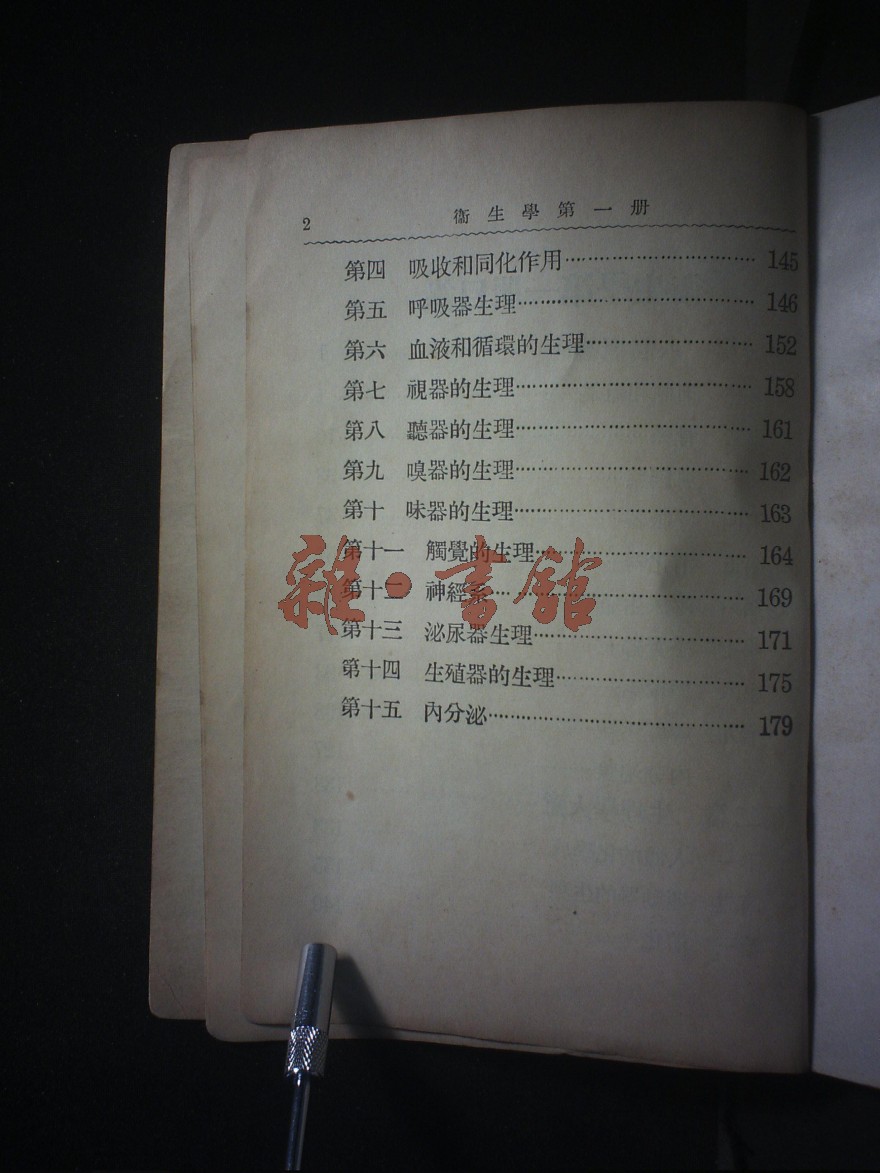 2 衞生學第一册
第四 吸收和同化作用………………………… 145
第五 呼吸器生理………………………… 146
第六 血液和循環的生理………………………… 152
第七 視器的生理………………………… 158
第八 聽器的生理………………………… 161
第九 嗅器的生理………………………… 162
第十 味器的生理………………………… 163
第十一 觸覺的生理………………………… 164
第十二 神經系………………………… 169
第十三 泌尿器生理………………………… 171
第十四 生殖器的生理………………………… 175
第十五 內分泌………………………… 179
雜·書館